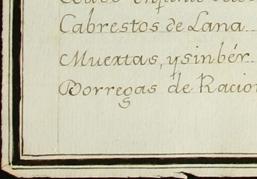 Cabrestos de Lana
Muertas, y sin bér
Borregas de Racion